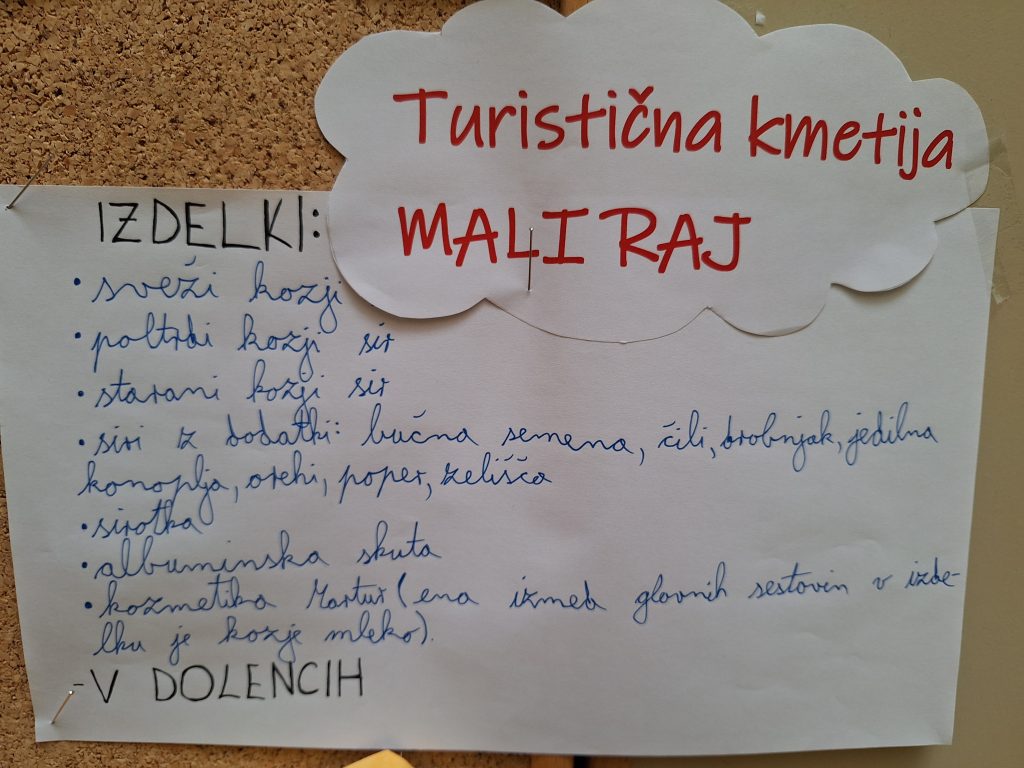 Turistična kmetija
MALI RAJ
IZDELKI:
• sveži kozji
• poltrdi kozji sir
• starani kozji sir
• siri z dodatki: bučna semena, čili, drobnjak, jedilna
konoplja, orehi, poper, zelišča
• sirotka
• albuminska skuta
• kozmetika (ena izmed glavnih sestavin v izde-
lku je kozje mleko).
-V DOLENCIH